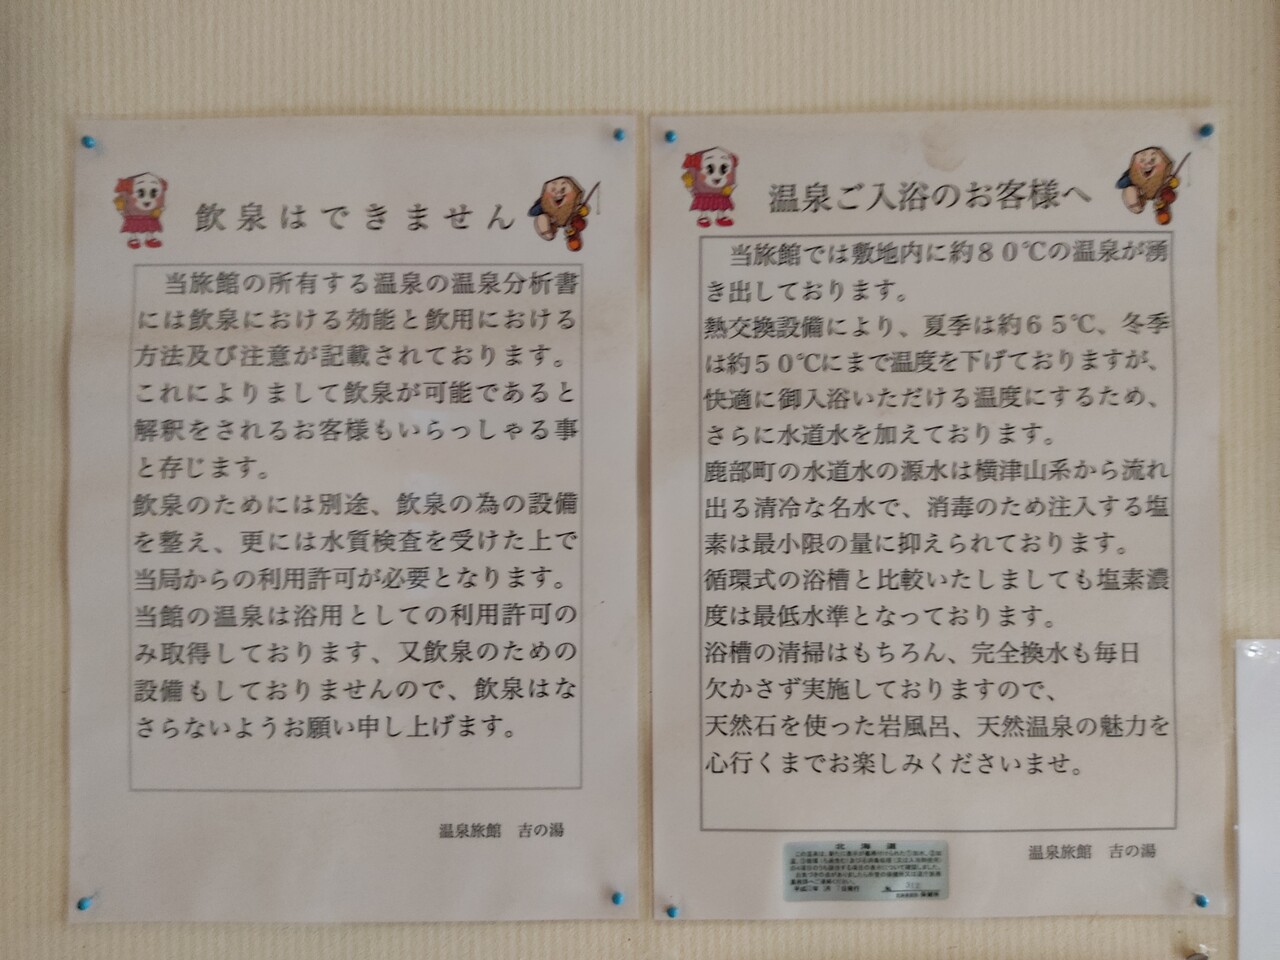 飲泉はできません
当旅館の所有する温泉の温泉分析書
には飲泉における効能と飲用における
方法及び注意が記載されております。
これによりまして飲泉が可能であると
解釈をされるお客様もいらっしゃる事
と存じます。
飲泉のためには別途、飲泉の為の設備
を整え、更には水質検査を受けた上で
当局からの利用許可が必要となります。
当館の温泉は浴用としての利用許可の
み取得しております、又飲泉のための
設備もしておりませんので、飲泉はな
さらないようお願い申し上げます。
温泉旅館 吉の湯
温泉ご入浴のお客様へ
当旅館では敷地内に約80℃の温泉が湧
き出しております。
熱交換設備により、夏季は約65℃、冬季
は約50℃にまで温度を下げておりますが、
快適に御入浴いただける温度にするため、
さらに水道水を加えております。
鹿部町の水道水の源水は横津山系から流れ
出る清冷な名水で、消毒のため注入する塩
素は最小限の量に抑えられております。
循環式の浴槽と比較いたしましても塩素濃
度は最低水準となっております。
浴槽の清掃はもちろん、完全換水も毎日
欠かさず実施しておりますので、
天然石を使った岩風呂、天然温泉の魅力を
心行くまでお楽しみくださいませ。
温泉旅館 吉の湯
北海道